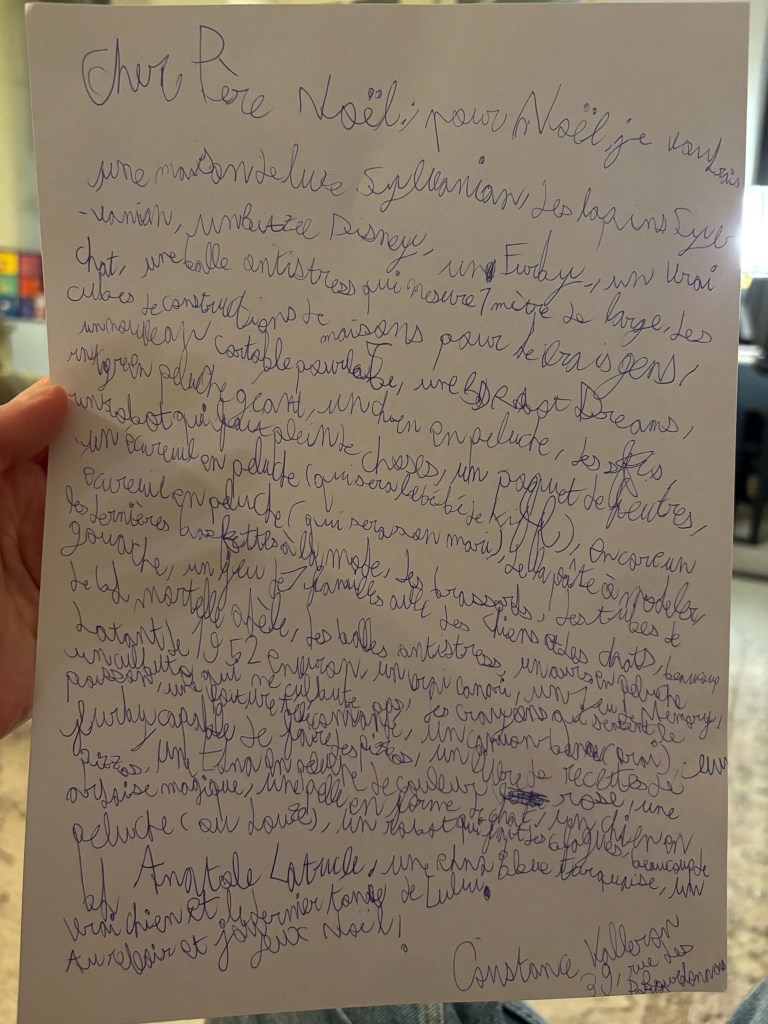 Cher Père Noël, pour Noël, je voudrais
une maison de luxe Sylvanian, des lapins Sylv
-vanian, un puzzle Disney, un Furby, un vrai
chat, une balle antistress qui mesure 1 mètre de large, des
cubes de constructions de maisons pour de vrais gens,
un nouveau cartable pour la, une BD Robot Dreams,
un gren peluche géant, un chien en peluche, des
un robot qui fais plein de choses, un paquet de feutres,
un écureuil en peluche (qui sera le bébé de Kiffi), encore un
écureuil en peluche (qui seras son mari), de la pâte à modeler,
les dernières baskettes à la mode, des brassards, des tubes de
gouache, un jeu de familles avec des chiens et des chats, beaucoup
de bd mortelle adèle, des balles antistress, un ours en peluche
datant de 1952 environ, un vrai canari, un jeu Memory,
un qui ne culbute pas, des crayons qui sentent le
poisson, une voiture, un camion benne (vrai), un
furby capable de faire des pizzas, un livre de recettes de
pizzas, un en peluche, de couleur rose, une
ardoise magique, une en forme de chat, un chien en
peluche (ou douze), un robot qui fait des blagues, beaucoup de
bd Anatole Latuile, une bleue turquoise, un
vrai chien et le dernier tome de Lulu.
Au revoir et joyeux Noël!
Constance Valleron
39, rue des